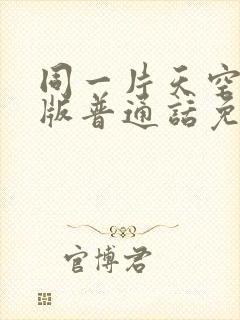 同一片天空
版普通话免
官博君